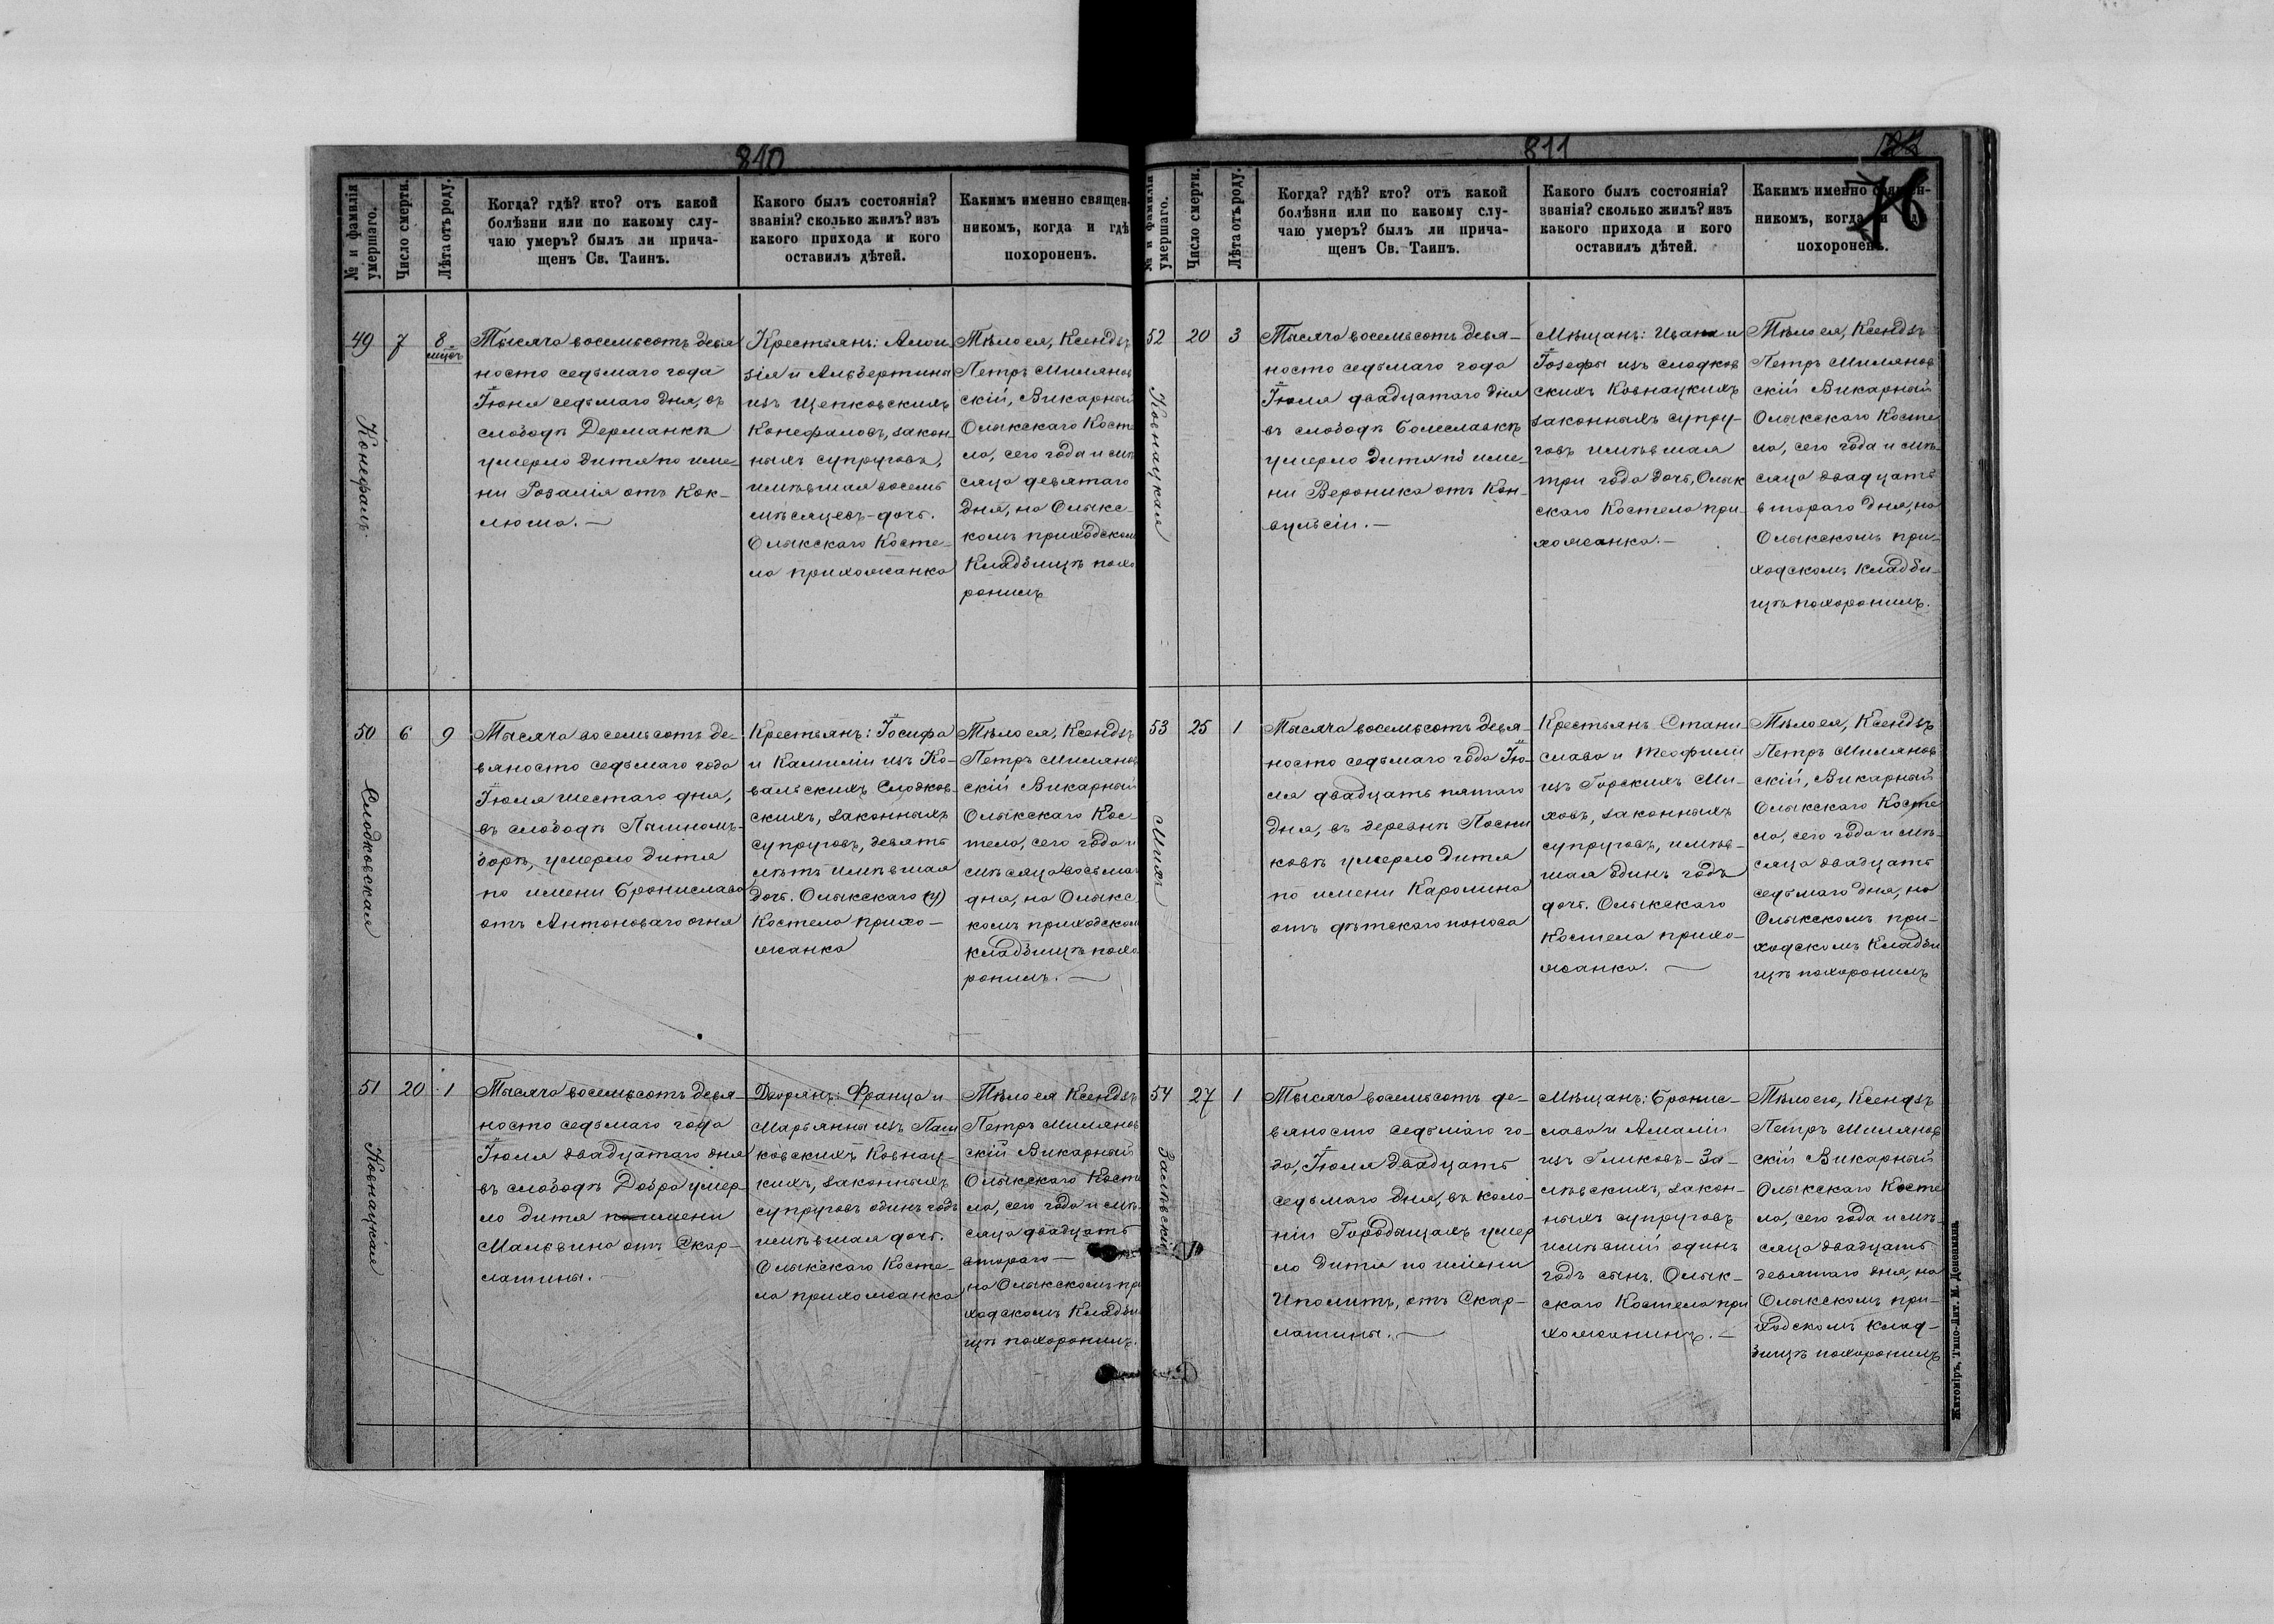 810
№ и фамилія умершаго.
Число смерти.
Лѣта отъ роду.
Когда? гдѣ? кто? отъ какой
болѣзни или по какому слу-
чаю умеръ? былъ ли прича-
щенъ Св. Таинъ.
Какого былъ состоянія?
званія? сколько жилъ? изъ
какого прихода и кого
оставилъ дѣтей.
Какимъ именно священ-
никомъ, когда и гдѣ
похороненъ.
49
Конефалъ
7
8
мѣсяц.
Тысяча восемьсотъ девя
носто седьмаго года
Іюня седьмаго дня, въ
слободѣ Дерманкѣ
умерло дитя по име-
ни Розалія отъ Кок-
люша. —
Крестьянъ: Алои
зія и Альбертины
изъ Щепковскихъ
Конефаловъ, закон-
ныхъ супруговъ,
имѣвшая восемь
мѣсяцевъ - дочь.
Олыкскаго Косте-
ла прихожанка
Тѣло ея, Ксендзъ
Петръ Милянов
скій, Викарный
Олыкскаго Косте
ла, сего года и мѣ
сяца девятаго
дня, на Олыкс-
комъ приходскомъ
Кладбищѣ похо
ронилъ
50
Слодковская
6
9
Тысяча восемьсотъ де-
вяносто седьмаго года
Іюля шестаго дня,
въ слободѣ Пашномъ-
борѣ, умерло дитя
по имени Бронислава
отъ Антоноваго огня
Крестьянъ: Іосифа
и Камиліи изъ Ко-
вальскихъ Слодков-
скихъ, законныхъ
супруговъ, девять
лѣтъ имѣвшая
дочь. Олыкскаго (у)
Костела прихо-
жанка
Тѣло ея, Ксендзъ
Петръ Милянов
скій Викарный
Олыкскаго Кос-
тела, сего года и
мѣсяца восьмаг
дня, на Олыкс
комъ приходском
кладбищѣ похо
ронилъ. —
51
Ковнацкая
20
1
Тысяча восемьсотъ девя-
носто седьмаго года
Іюля двадцатаго дня
въ слободѣ Добра умер-
ло дитя по имени
Мальвина отъ Скар-
латины. —
Дворянъ: Франца и
Марьянны изъ Паш
ковскихъ Ковнац-
кихъ, законныхъ
супруговъ один годъ
имѣвшая дочь.
Олыкскаго Косте-
ла прихожанка
Тѣло ея Ксендзъ
Петръ Милянов
скій Викарный
Олыкскаго Косте
ла, сего года и мѣ-
сяца двадцать
втораго —
на Олыкскомъ при
ходскомъ Кладби
щѣ похоронилъ.
811
76
№ и фамилія умершаго.
Число смерти.
Лѣта отъ роду.
Когда? гдѣ? кто? отъ какой
болѣзни или по какому слу-
чаю умеръ? былъ ли прича-
щенъ Св. Таинъ.
Какого былъ состоянія?
званія? сколько жилъ? изъ
какого прихода и кого
оставилъ дѣтей.
Какимъ именно священ-
никомъ, когда и гдѣ
похороненъ.
52
Ковнацкая
20
3
Тысяча восемьсотъ девя-
носто седьмаго года
Іюля двадцатаго дня
въ слободѣ Болеславкѣ
умерло дитя по име-
ни Вероника отъ Кон-
вульсіи. —
Мѣщанъ: Ивана и
Іозефы изъ Слодков
скихъ Ковнацкихъ
законныхъ супру-
говъ имѣвшая
три года дочь, Олык
скаго Костела при-
хожанка. —
Тѣло ея, Ксендзъ
Петръ Милянов
скій Викарный
Олыкскаго Косте
ла, сего года и мѣ-
сяца двадцать
втораго дня, на
Олыкскомъ при-
ходскомъ Кладби-
щѣ похоронилъ.
53
Михъ
25
1
Тысяча восемьсотъ девя-
носто седьмаго года Ію-
ля двадцать пятаго
дня, въ деревнѣ Посни
ковѣ умерло дитя
по имени Каролина
отъ дѣтскаго поноса
Крестьянъ Стани
слава и Теофили
изъ Горскихъ Ми-
ховъ, законныхъ
супруговъ, имѣв-
шая одинъ годъ
дочь. Олыкскаго
Костела прихо-
жанка. —
Тѣло ея, Ксендзъ
Петръ Милянов
скій, Викарный
Олыкскаго Косте
ла, сего года и мѣ-
сяца двадцать
седьмаго дня, на
Олыкскомъ при-
ходскомъ Кладби
щѣ похоронилъ
54
Залѣвскій
27
1
Тысяча восемьсотъ де-
вяносто седьмаго го-
да, Іюля двадцать
седьмаго дня, въ коло-
ніи Городыщахъ умер
ло дитя по имени
Иполитъ, отъ Скар-
латины. —
Мѣщанъ: Бронис-
лава и Амаліи
изъ Гликовъ - За-
лѣвскихъ, закон-
ныхъ супруговъ
имѣвшій одинъ
годъ сынъ. Олык-
скаго Костела при
хожанинъ. —
Тѣло его, Ксендзъ
Петръ Милянов
скій Викарный
Олыкскаго Косте
ла, сего года и мѣ-
сяца двадцать
девятаго дня, на
Олыкскомъ при-
ходскомъ клад-
бищѣ похоронилъ
Житоміръ, Типо-Лит. М. Дененмана.